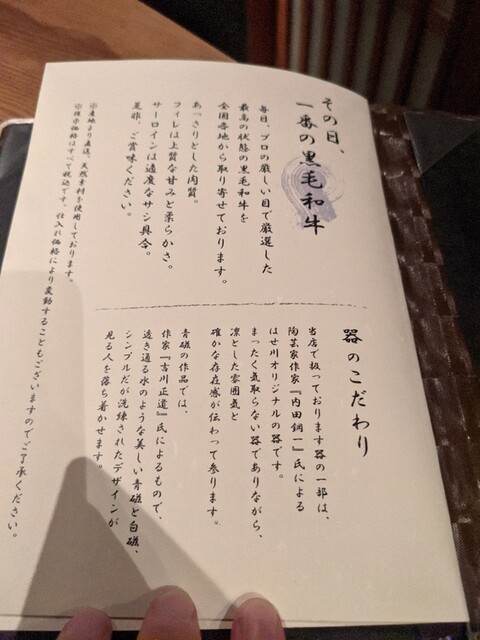 その日、
一番の黒毛和牛
毎日、プロの厳しい目で厳選した
最高の状態の黒毛和牛を
全国各地から取り寄せております。
あっさりとした肉質。
フィレは上質な甘みと柔らかさ。
サーロインは適度なサシ具合。
是非、ご賞味ください。
※産地より直送、天然素材を使用しております。
※表示価格はすべて税込です。仕入れ価格により変動することもございますのでご了承ください。
器のこだわり
当店で扱っております器の一部は、
陶芸家作家『内田鋼一』氏による
はせ川オリジナルの器です。
まったく気取らない器でありながら、
凛とした雰囲気と
確かな存在感が伝わって参ります。
青磁の作品では、
作家『吉川正道』氏によるもので、
透き通る水のような美しい青磁と白磁、
シンプルだが洗練されたデザインが
見る人を落ち着かせます。